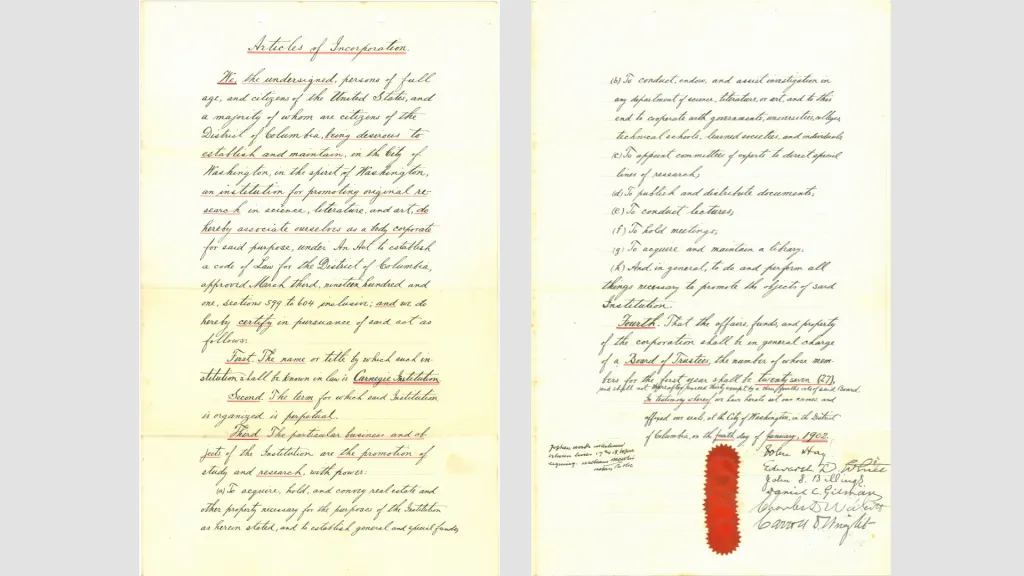 Articles of Incorporation.
We, the undersigned, persons of full
age, and citizens of the United States, and
a majority of whom are citizens of the
District of Columbia, being desirous to
establish and maintain, in the City of
Washington, in the spirit of Washington,
an institution for promoting original re-
search in science, literature, and art, do
hereby associate ourselves as a body corporate
for said purpose, under An Act to establish
a code of Law for the District of Columbia,
approved March third, nineteen hundred and
one, sections 599 to 604 inclusive; and we do
hereby certify in pursuance of said act as
follows:
First. The name or title by which such in-
stitution shall be known in law is Carnegie Institution
Second. The term for which said Institution
is organized is perpetual.
Third. The particular business and ob-
jects of the Institution are the promotion of
study and research, with power:
(a) To acquire, hold, and convey real estate and
other property necessary for the purposes of the Institution
as herein stated, and to establish general and special funds;
(b) To conduct, endow, and assist investigation in
any department of science, literature or art, and to this
end to cooperate with governments, universities, colleges
technical schools, learned societies, and individuals
(c) To appoint committees of experts to direct special
lines of research;
(d) To publish and distribute documents;
(e) To conduct lectures;
(f) To hold meetings;
(g) To acquire and maintain a library.
(h) And in general, to do and perform all
things necessary to promote the objects of said
Institution.
Fourth. That the affairs, funds, and property
of the corporation shall be in general charge
of a Board of Trustees, the number of whose mem-
bers for the first year shall be twenty seven (27),
and shall not thereafter exceed thirty except by a three-fourths vote of said Board.
In testimony whereof we have hereto set our names and
affixed our seals, at the City of Washington, in the District
of Columbia, on the fourth day of January, 1902.
John Hay
Edward D. White
John S. Billings
Daniel C. Gilman
Charles D Walcott
Carroll D. Wright